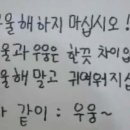 우울해하지 마십시오!
울과 우웅은 한끗 차이입
울해 말고 귀여워지십
나 같이 : 우웅~